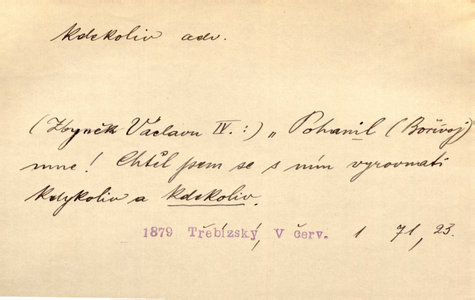 kdekoliv adv.
(Zbyněk Václavu IV.:) „Pohanil (Bořivoj)
mne! Chtěl jsem se s ním vyrovnati
kdykoliv a kdekoliv.
1879 Třebízský, V červ. 1 71, 23.